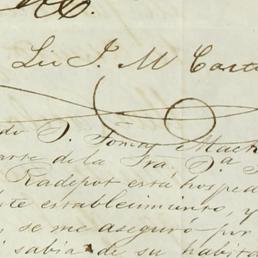 Lic J. M Cort
do D. Tomas Mac
arte de la Sra. Da
Radepot está hosped
te establecimiento, y
, se me aseguró por
sabia de su habita